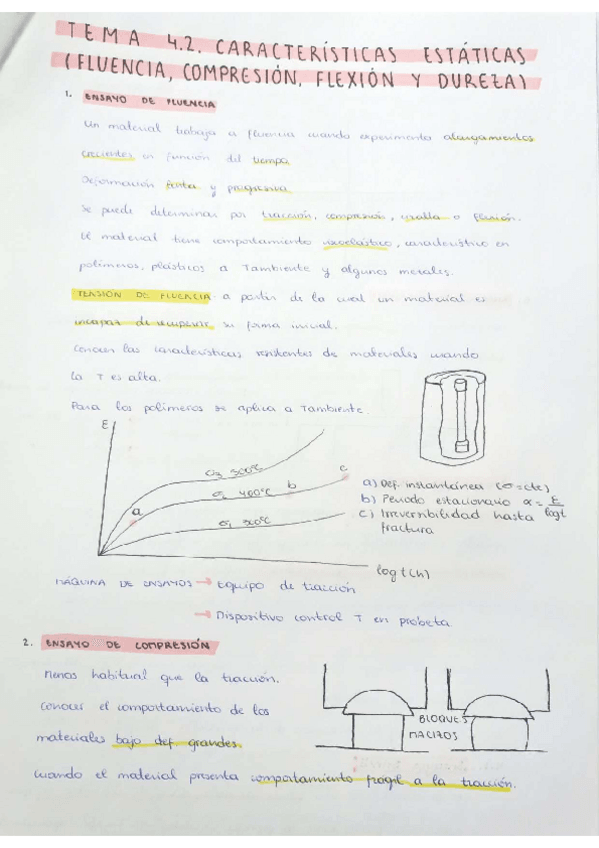 TEMA 4.2. CARACTERÍSTICAS ESTÁTICAS
(FLUENCIA, COMPRESIÓN, FLEXIÓN Y DUREZA)
1. ENSAYO DE FLUENCIA
Un material trabaja a fluencia cuando experimenta alargamientos
crecientes en función del tiempo.
Deformación lenta y progresiva.
Se puede determinar por tracción, compresión, cizalla o flexión.
El material tiene comportamiento viscoelástico, característico en
polímeros, plásticos a Tambiente y algunos metales.
TENSIÓN DE FLUENCIA a partir de la cual un material es
incapaz de recuperar su forma inicial.
Conocer las características resistentes de materiales cuando
la T es alta.
Para los polímeros se aplica a Tambiente.
ε
σ3 500°C
σ2 400°C
σ1 300°C
a
b
c
log t (h)
a) Def. instantánea (σ = cte)
b) Periodo estacionario α = ε/logt
c) Irreversibilidad hasta
fractura
MÁQUINA DE ENSAYOS → Equipo de tracción
→ Dispositivo control T en probeta.
2. ENSAYO DE COMPRESIÓN
Menos habitual que la tracción.
Conocer el comportamiento de los
materiales bajo def. grandes.
BLOQUES
MACIZOS
Cuando el material presenta comportamiento frágil a la tracción.